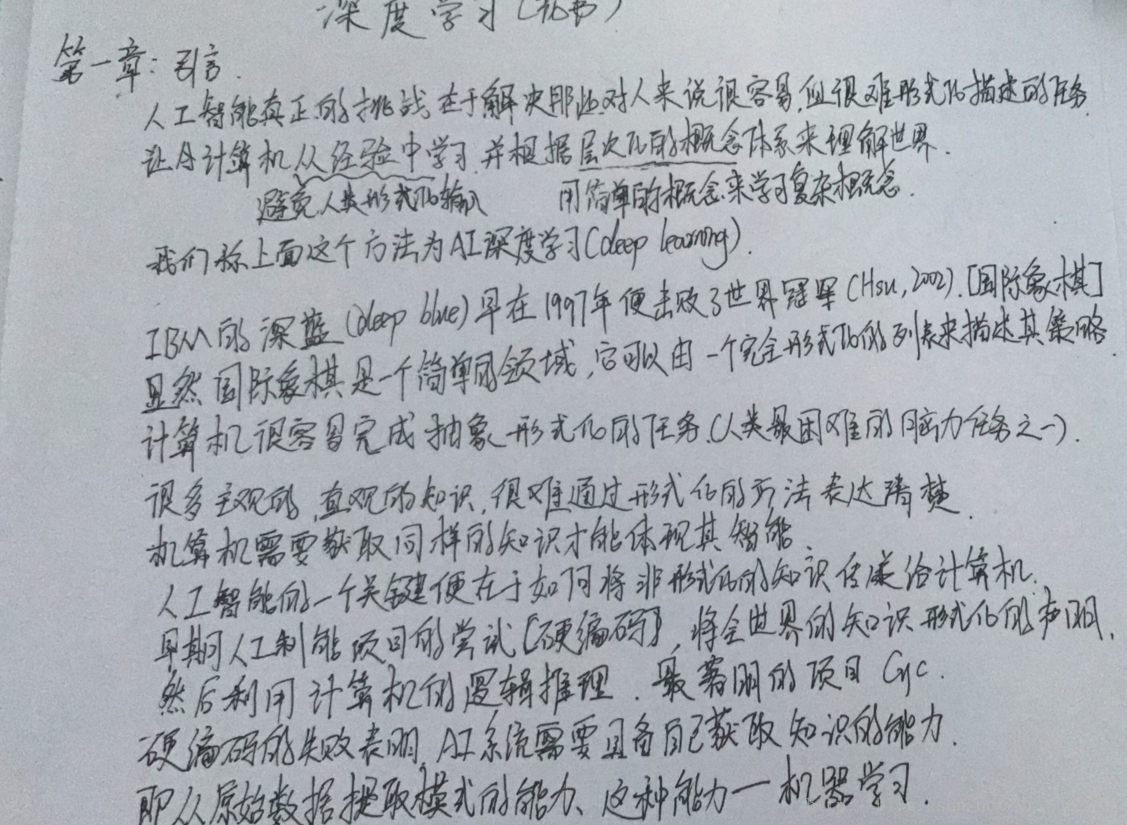 深度学习(花书)
第一章: 引言.
人工智能真正的挑战在于解决那些对人来说很容易,但很难形式化描述的任务
让计算机从经验中学习,并根据层次化的概念体系来理解世界.
避免人类形式化输入 用简单的概念来学习复杂概念.
我们称上面这个方法为AI深度学习(deep learning).
IBM的深蓝(deep blue)早在1997年便击败了世界冠军(Hsu,2002).[国际象棋]
显然国际象棋是一个简单的领域,它可以由一个完全形式化的列表来描述其策略
计算机很容易完成抽象形式化的任务.(人类最困难的脑力任务之一).
很多主观的,直观的知识,很难通过形式化的方法表达清楚.
机算机需要获取同样的知识才能体现其智能
人工智能的一个关键便在于如何将非形式化的知识传递给计算机.
早期人工制能项目的尝试[硬编码],将全世界的知识形式化的声明,
然后利用计算机的逻辑推理.最著明的项目Cyc.
硬编码的失败表明,AI系统需要具备自己获取知识的能力.
即从原始数据提取模式的能力、这种能力一机器学习.